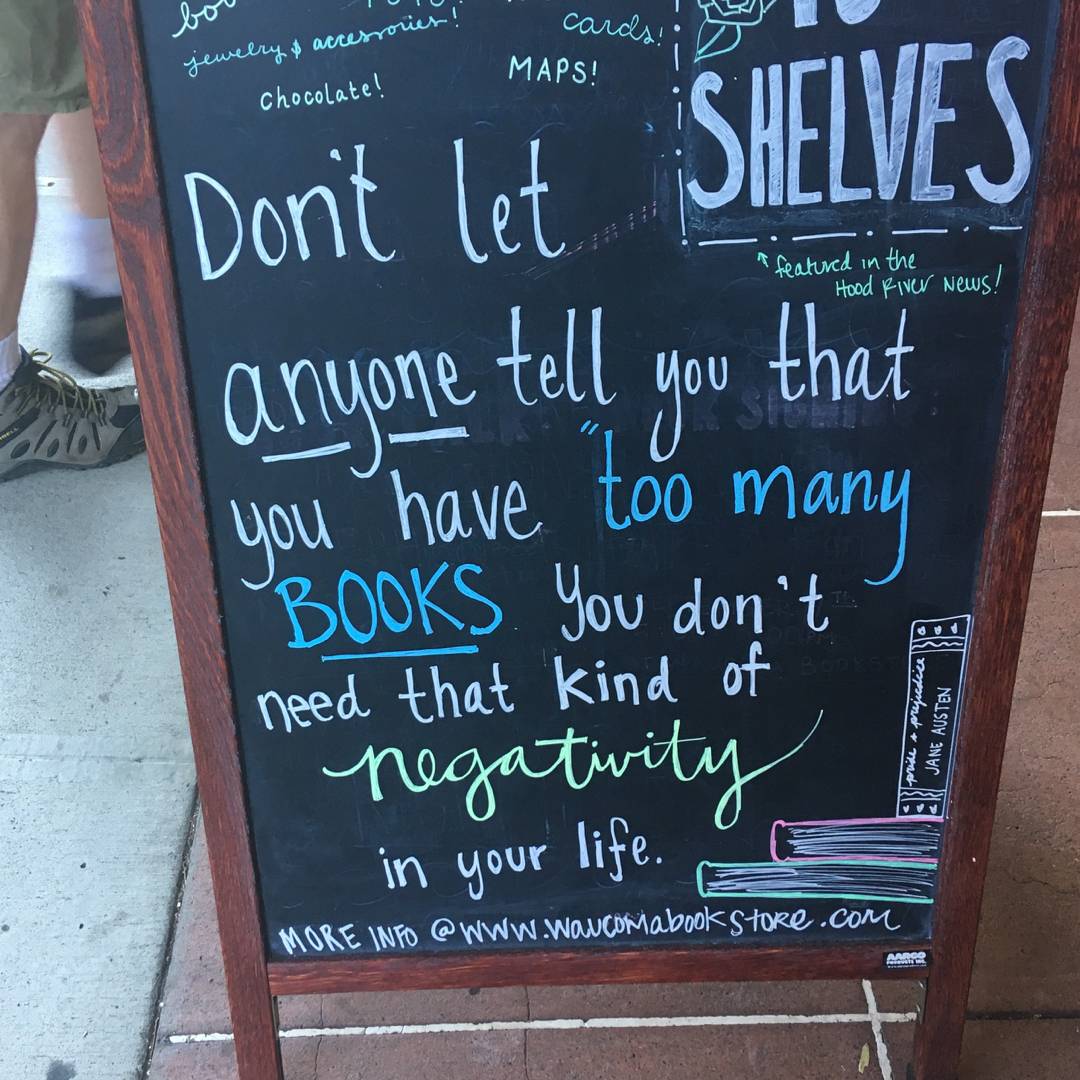 jewelry & accessories!
cards!
chocolate!
MAPS!
SHELVES
featured in the
Hood River News!
Don't let
anyone tell you that
you have "too many
BOOKS You don't
need that kind of
negativity
in your life.
pride + prejudice
JANE AUSTEN
MORE INFO @ www.waucomabookstore.com
AARCO
PRODUCTS INC.